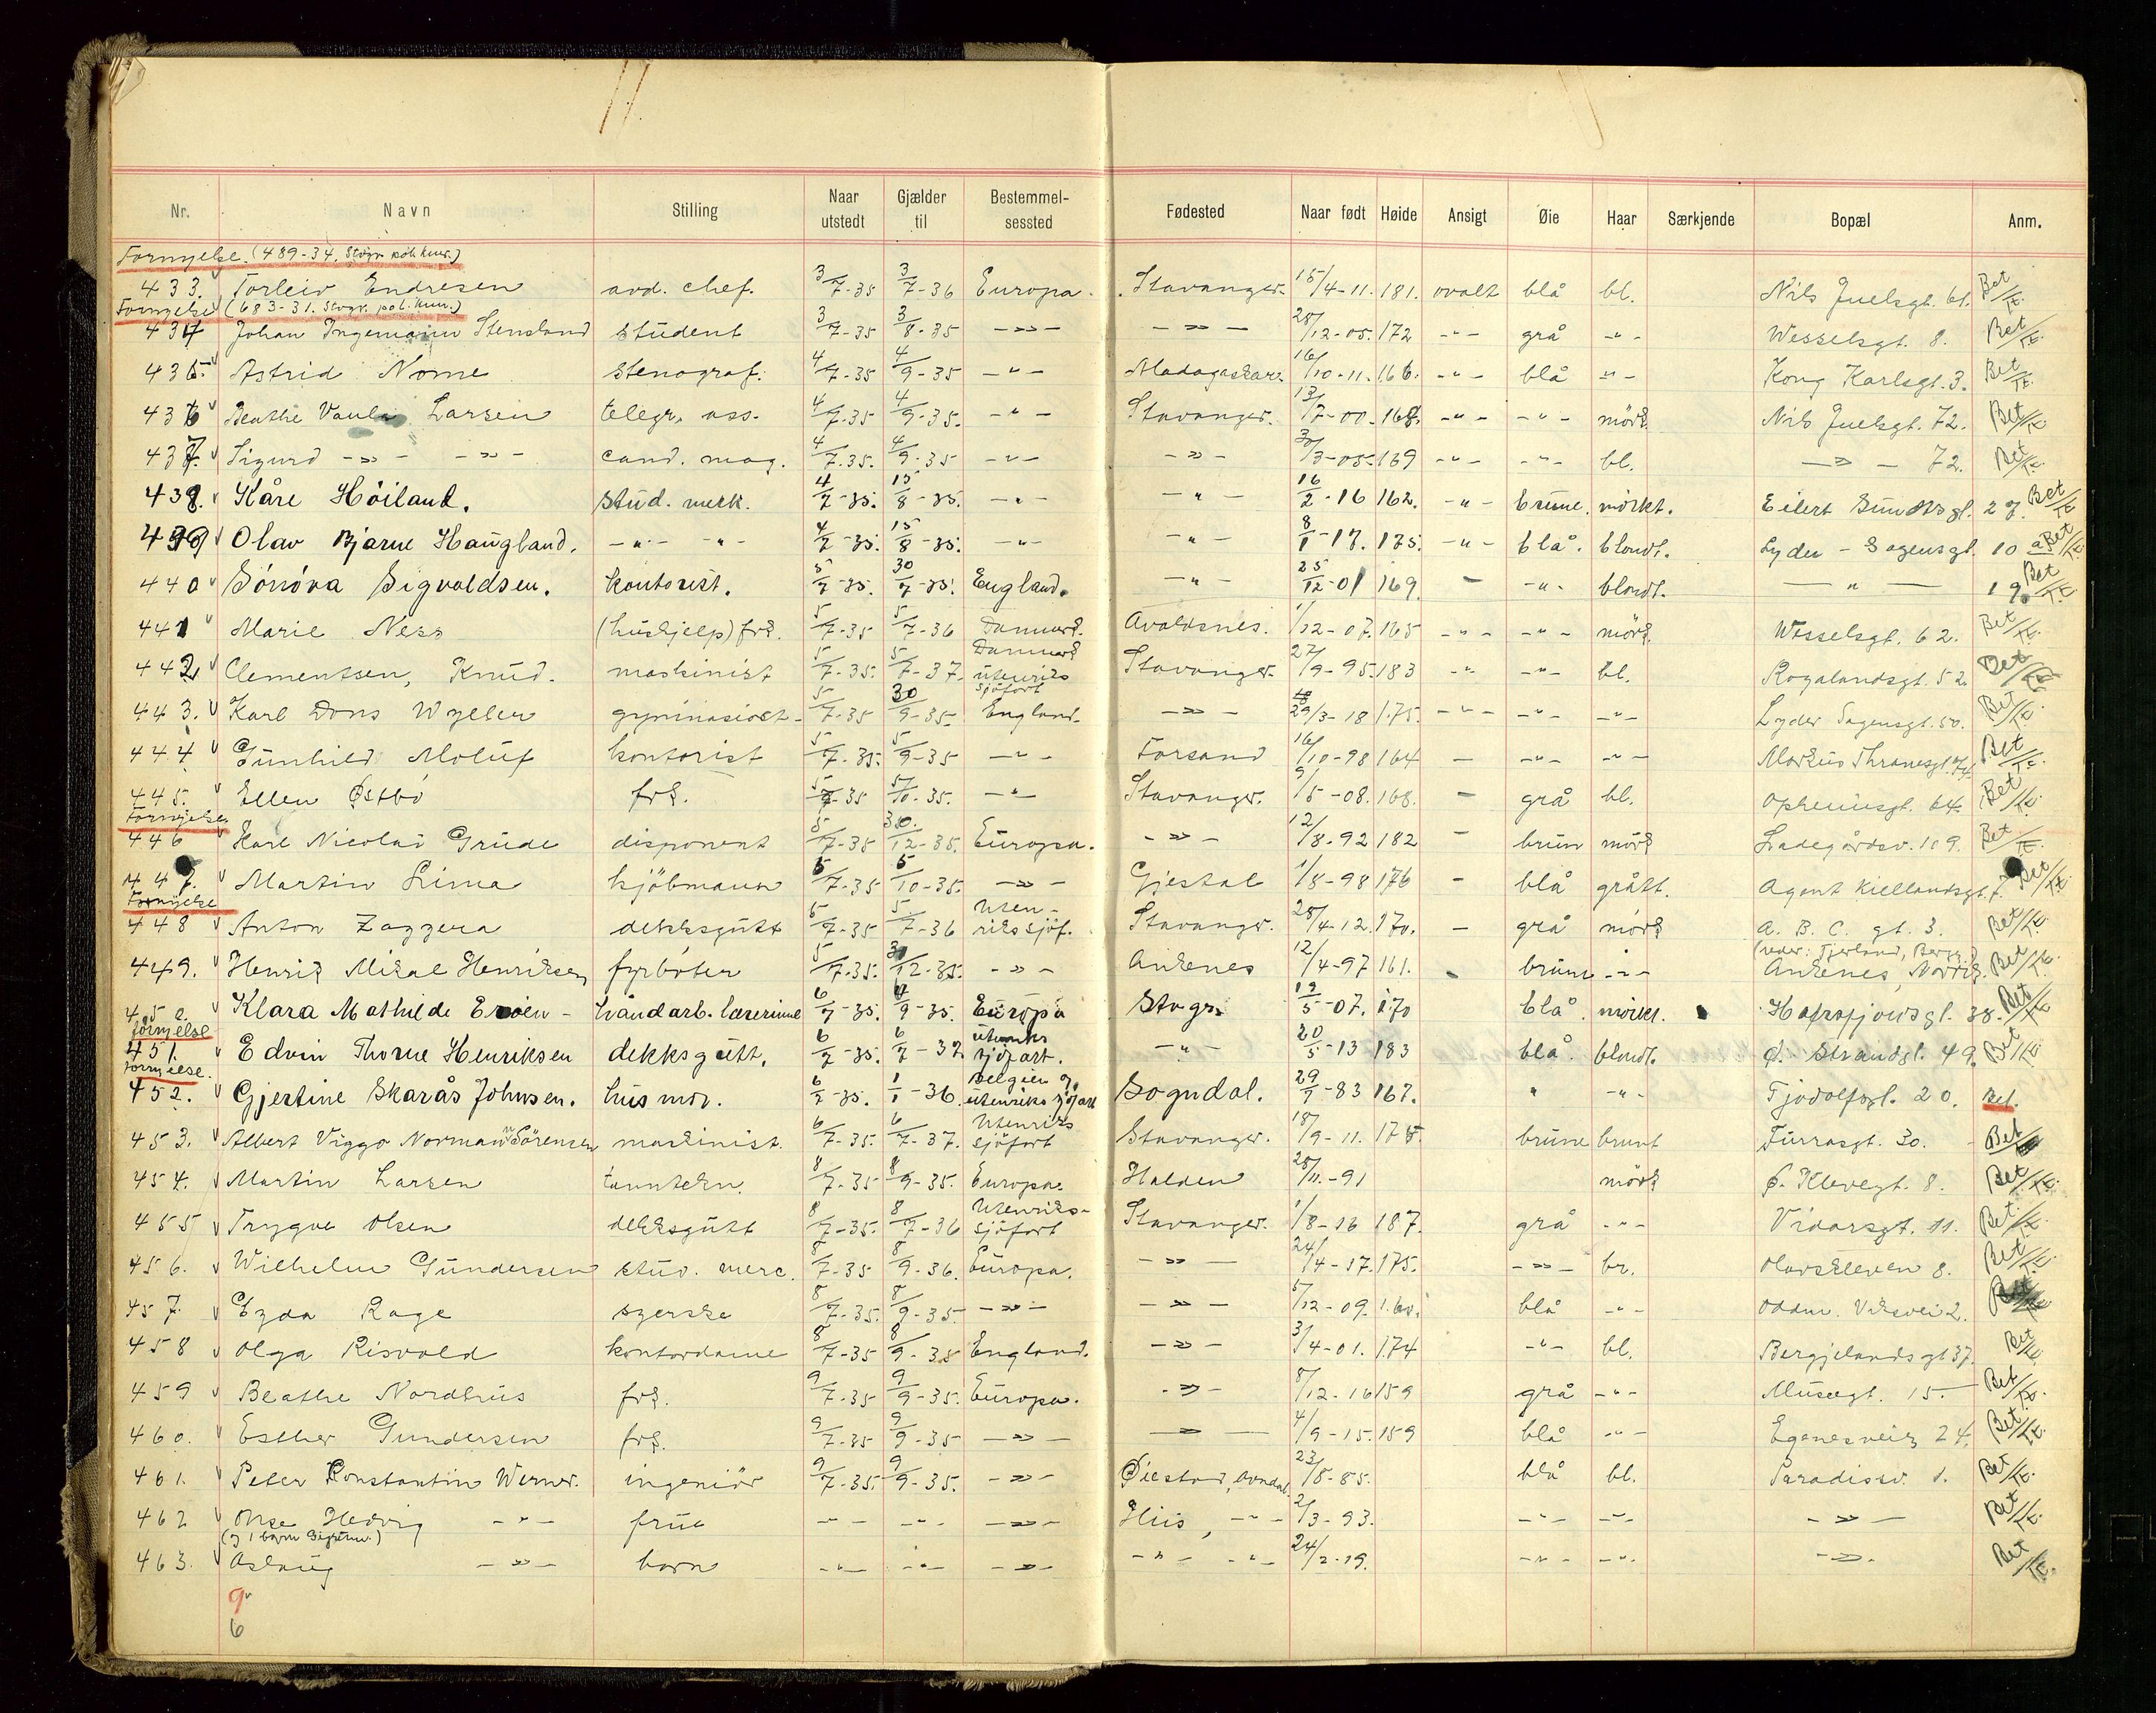 Nr. Navn Stilling Naar utstedt Gjælder til Bestemmelsessted Fødested Naar født Høide Ansigt Øie Haar Særkjende Bopæl Anm.
Fornyelse. (489-34, Stvgr. pol.kmr.)
433. Torleiv Endresen avd. chef. 3/7-35 3/7-36 Europa. Stavanger. 15/4-11. 181. ovalt blå bl. Nils Juelsgt. 61. Bet
Fornyelse (683-31. Stvgr. pol.kmr.)
434 Johan Ingemann Stensland student 3/7-35 3/8-35 -»- -»- 28/12-05. 172 -"- grå -"- Wesselsgt. 8. Bet
435. Astrid Nome stenograf. 4/7-35 4/9-35 -"- Madagaskar. 16/10-11. 166. -"- blå -"- Kong Karlsgt. 3. Bet
436 Beathe Vaula Larsen telegr. ass. 4/7-35 4/9-35. -"- Stavanger. 13/7-00. 168. -"- -"- mörk. Nils Juelsgt. 72. Bet
437. Sigurd -»- -»- cand. mag. 4/7-35. 4/9-35 -"- -»- 30/3-05. 169 -"- -"- bl. -»- 72. Bet
438. Kåre Höiland. stud. merk. 4/7-35. 15/8-35. -"- -"- 16/2-16 162. -"- brune. mörkt. Eilert Sundtsgt. 27. Bet
439 Olav Bjarne Haugland. -"- -"- 4/7-35. 15/8-35. -"- -"- 8/1-17. 175. -"- blå. blondt. Lyder-Sagensgt. 10 a Bet
440 Sónóva Sigvaldsen. kontorist. 5/7-35. 30/7-35. England. -"- 25/12-01 169. - -"- blondt. -"- 19. Bet
441 Marie Ness (hushjelp) frk. 5/7-35 5/7-36 Danmark. Avaldsnes. 1/12-07. 165 -"- -"- mörk. Wesselsgt. 62. Bet
442 Clementsen, Knud. maskinist 5/7-35. 5/7-37. Danmark utenriks sjöfart Stavanger. 27/9-95. 183 -"- -"- bl. Rogalandsgt. 52. Bet
443. Karl Dons Wyller gymnasiast- 5/7-35 30/9-35. England. -»- 29/3-18 175. -"- -"- -"- Lyder Sagensgt. 50. Bet
444 Gunhild Moluf kontorist 5/7-35. 5/9-35 -"- Forsand 16/10-98 164 - -"- -"- Markus Thranesgt. Bet
445. Ellen Østbö frk. 5/7-35 5/10-35. -"- Stavanger. 9/5-08. 168. - grå bl. Opheimsgt. 64. Bet
Fornyelse
446 Karl Nicolai Grude disponent 5/7-35 30/12-35. Europa. -»- 12/8-92 182 - brun mörk Ladegårdsv. 109. Bet
447. Martin Lima kjöbmann 5/7-35 5/10-35. -»- Gjestal 1/8-98 176 - blå grått. Agent Kiellandsgt. 7 Bet
Fornyelse
448 Anton Zaggera dekksgutt 5/7-35 5/7-36 Utenriks sjöf. Stavanger. 28/4-12. 170. - grå mörk A. B. C. gt. 3. Bet
449. Henrik Mikal Henriksen fyrböter 5/7-35. 31/12-35. -»- Ankenes 12/4-97 161. - brune -"- Ankenes, Narvik. Bet
450. Klara Mathilde Eroien - håndarb. lærerinne 6/7-35. 6/9-35. Europa Stvgr. 19/5-07. 170 blå. mörkt. Hafrsfjordsgt. 38. Bet
fornyelse
451. Edvin Thorne Henriksen dekksgutt. 6/7-35. 6/7-37 utenriks sjöfart. -"- 20/5-13 183 blå. blondt. ø. Strandgt. 49. Bet
fornyelse.
452. Gjertine Skarås Johnsen. husmor. 6/7-35. 1/1-36. Belgien og utenriks sjöfart Sogndal. 29/7-83 167. " -"- Tjodolfsgt. 20. Bet.
453. Albert Viggo Normann Sörensen maskinist. 6/7-35. 6/7-37. Utenriks sjöfart Stavanger. 18/9-11. 178. brune brunt Furrasgt. 30. Bet
454. Martin Larsen tanntekn. 8/7-35 8/9-35. Europa. Halden 28/11-91 mörk ø. Klevegt. 8. Bet
455 Trygve Olsen dekksgutt 8/7-35. 8/7-36 Utenriks-sjöfart Stavanger. 1/8-16 187. grå -"- Vidarsgt. 11. Bet
456. Wilhelm Gundersen stud. merc. 8/7-35 8/9-36. Europa. -»- 24/4-17. 175. -»- br. Olavskleven 8. Bet
457. Ezda Rage syerske 8/7-35. 8/9-35. -»- -»- 5/12-09. 160. blå -"- Oddm. Viksvei 2. Bet
458 Olga Risvold kontordame 8/7-35 8/9-35 England. -»- 3/4-01. 174 -"- bl. Bergjelandsgt 37. Bet
459 Beathe Nordhus frk. 9/7-35 9/9-35. Europa. -»- 8/12-16 159 grå -"- Museegt. 15. Bet
460. Esther Gundersen frk. 9/7-35 9/9-35 -»- -»- 4/9-15. 159 blå -"- Eganesveien 24. Bet
461. Peter Konstantin Werner. ingeniör 9/7-35. 9/9-35. -»- Øiestad, Arendal. 23/8-85. blå bl. Paradisv. 1. Bet
462 Hedvig -"- frue -"- -"- -»- His, -"- 2/3-93. -"- -"- -»- Bet
463. Aslaug -»- barn -"- -"- -»- -"- -"- 24/2-19. -"- -"- -»- Bet
9
6